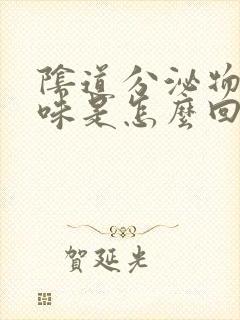 陰道分泌物
味是怎麼回
賀延光